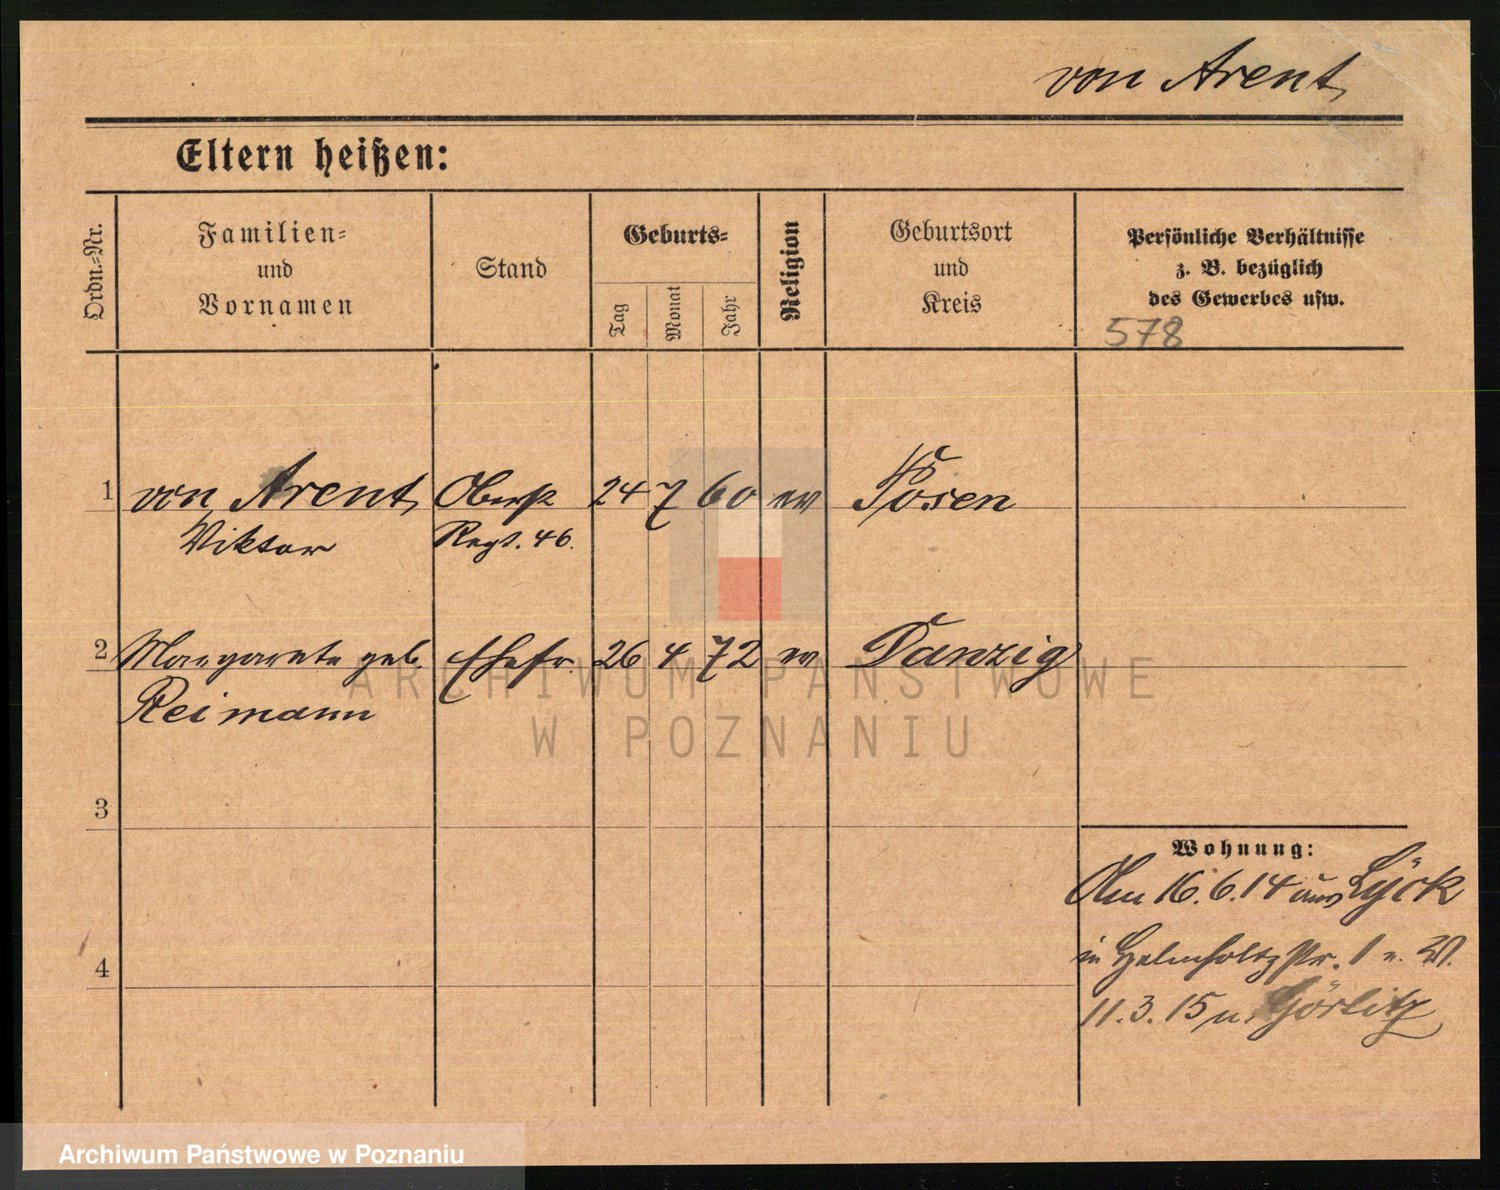 von Arent
Eltern heißen:
Ordn.-Nr.
Familien-
und
Vornamen
Stand
Geburts-
Tag
Monat
Jahr
Religion
Geburtsort
und
Kreis
Persönliche Verhältnisse
z. B. bezüglich
des Gewerbes usw.
578
1 von Arent Oberst 24 7 60 ev Posen
Viktor Regt. 46.
2 Margarete geb. Ehefr. 26 4 72 ev Danzig
Reimann
3
4
Wohnung:
Am 16.6.14 aus Lyck
in Helmholtzstr. 1 u. W.
11.3.15 n. Görlitz
ARCHIWUM PAŃSTWOWE
W POZNANIU
Archiwum Państwowe w Poznaniu